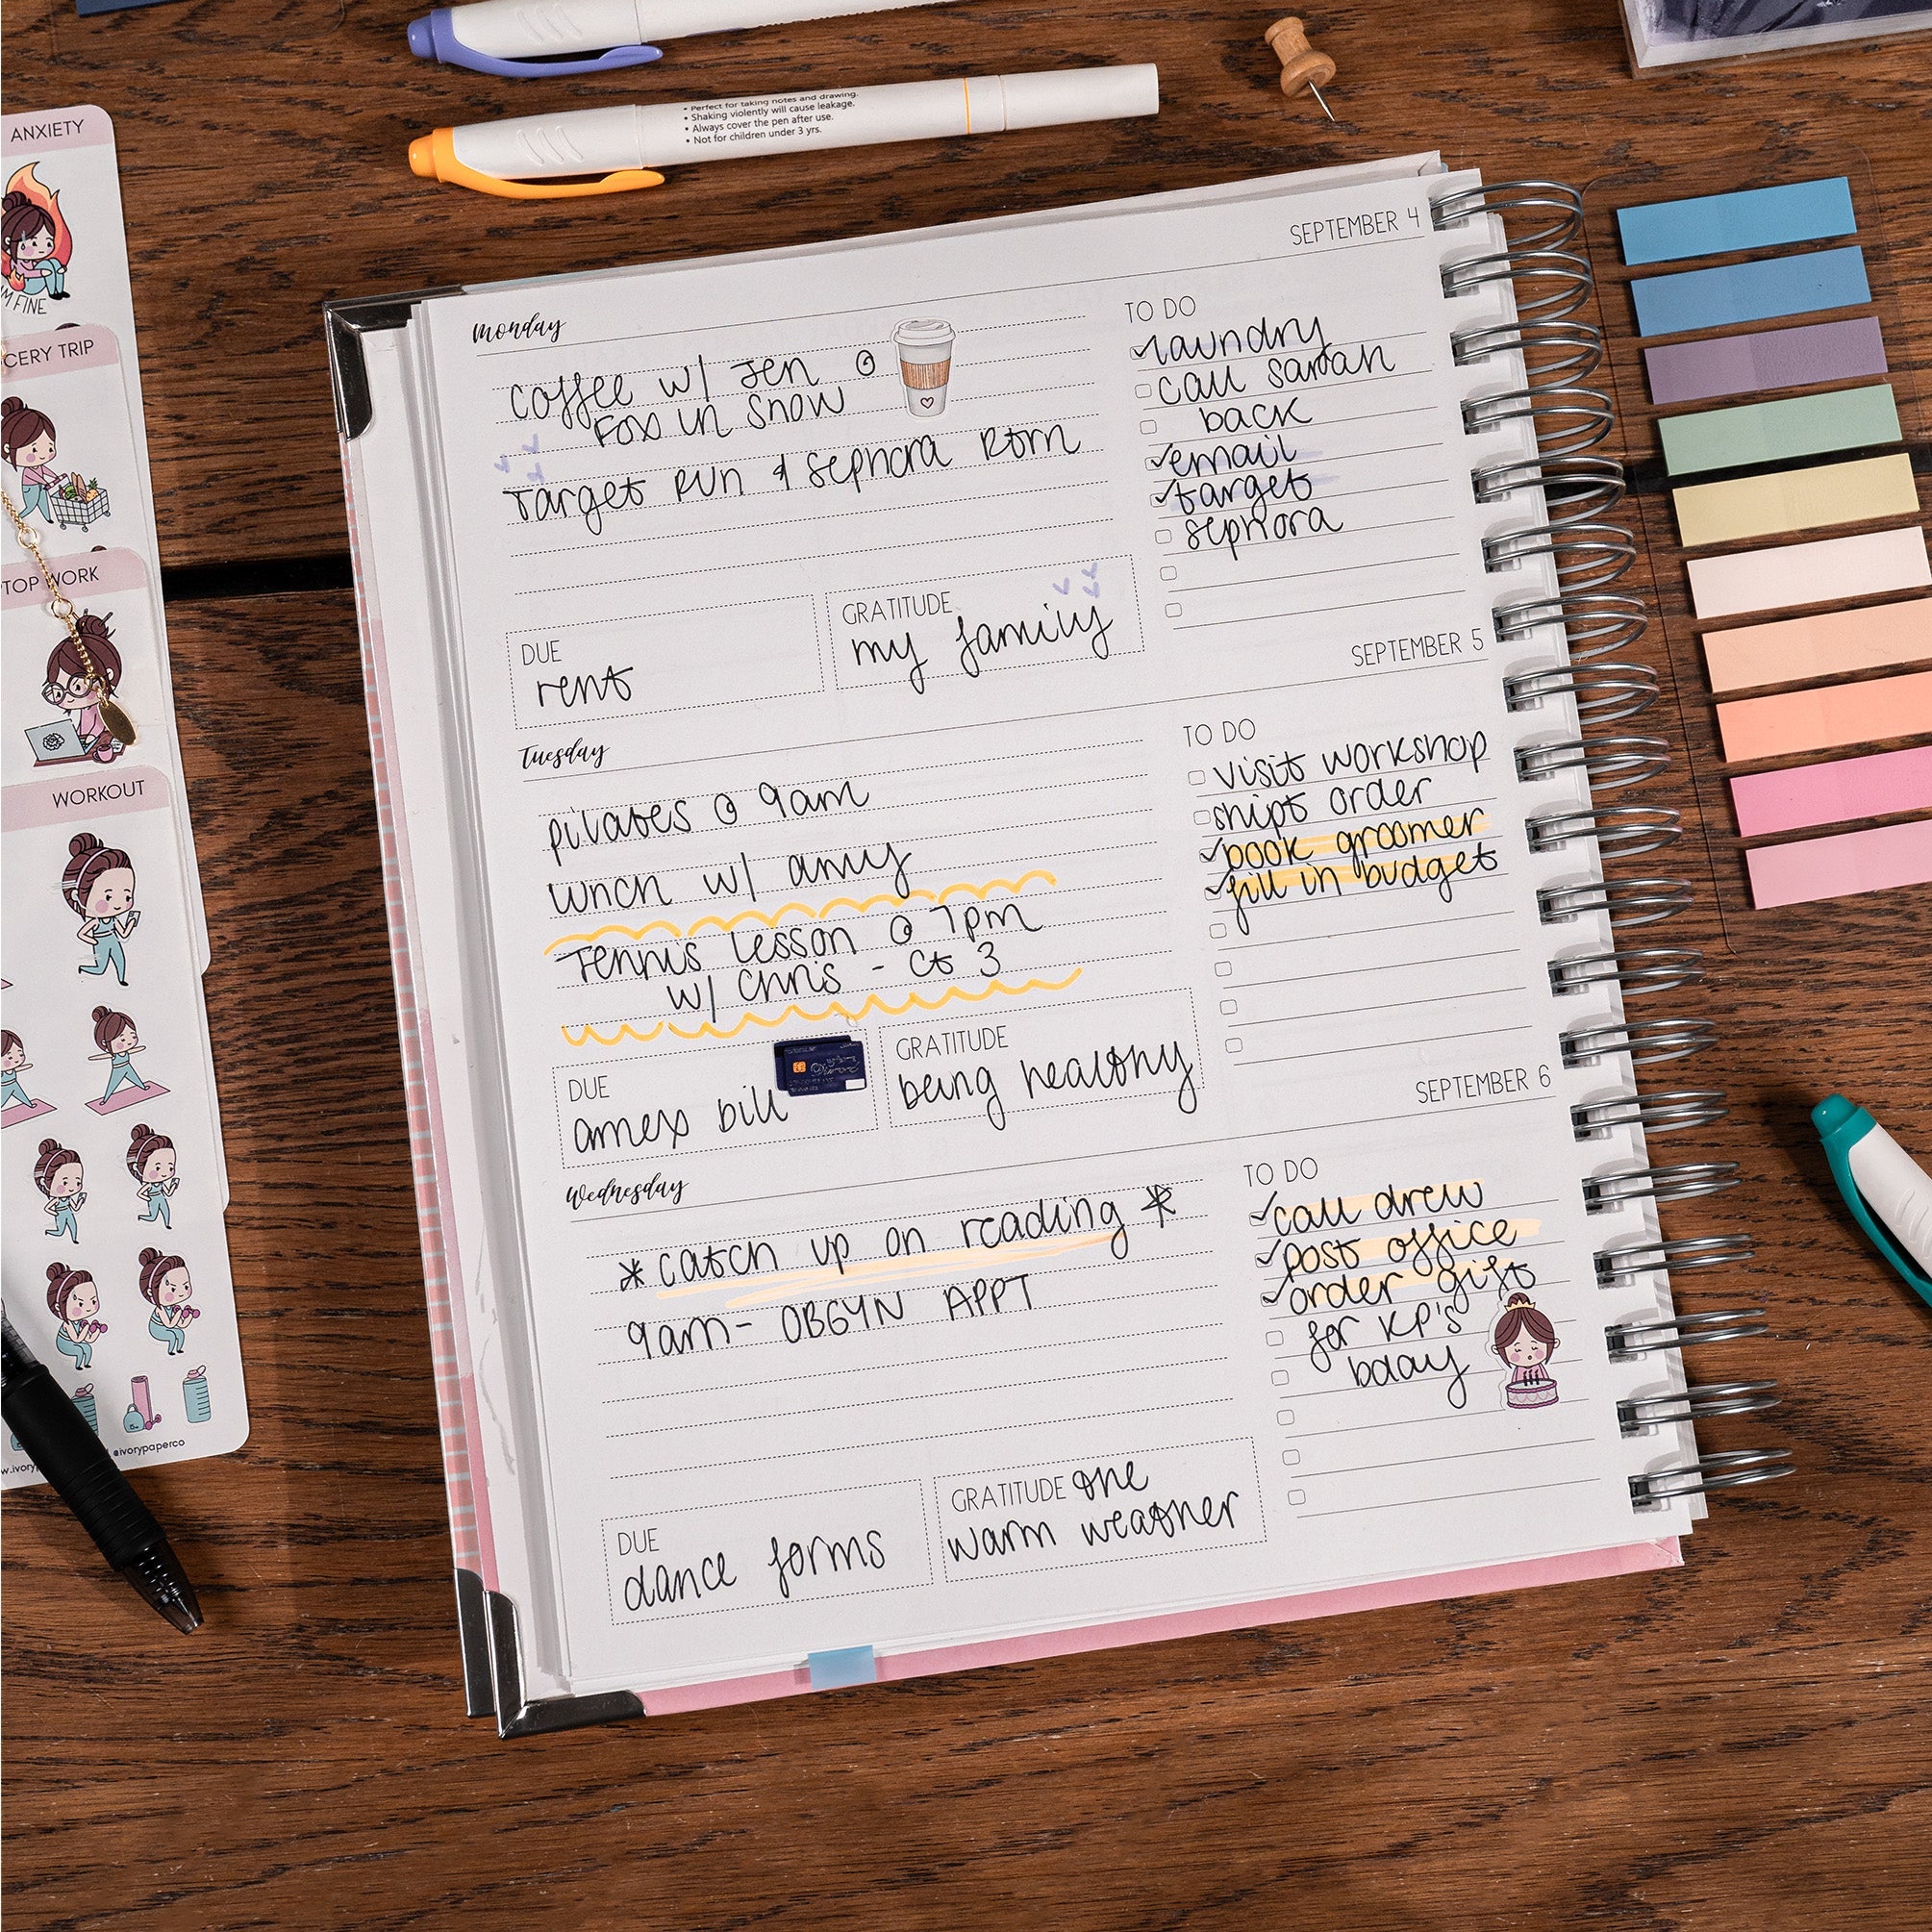 • Perfect for taking notes and drawing.
• Shaking violently will cause leakage.
• Always cover the pen after use.
• Not for children under 3 yrs.
ANXIETY
I'M FINE
CERY TRIP
TOP WORK
WORKOUT
@ivorypaperco
SEPTEMBER 4
monday
coffee w/ Jen @
Fox in Snow
Target RUN & Sephora Rtrn
DUE
rent
GRATITUDE
my family
TO DO
laundry
call sarah
back
email
target
sephora
SEPTEMBER 5
Tuesday
pilates @ 9am
lunch w/ amy
Tennis Lesson @ 7pm
w/ Chris - Ct 3
DUE
amex bill
GRATITUDE
being healthy
TO DO
visit workshop
ship order
book groomer
fill in budget
SEPTEMBER 6
Wednesday
* catch up on reading *
9am- OBGYN APPT
DUE
dance forms
GRATITUDE the
warm weather
TO DO
call drew
post office
order gift
for KP's
bday